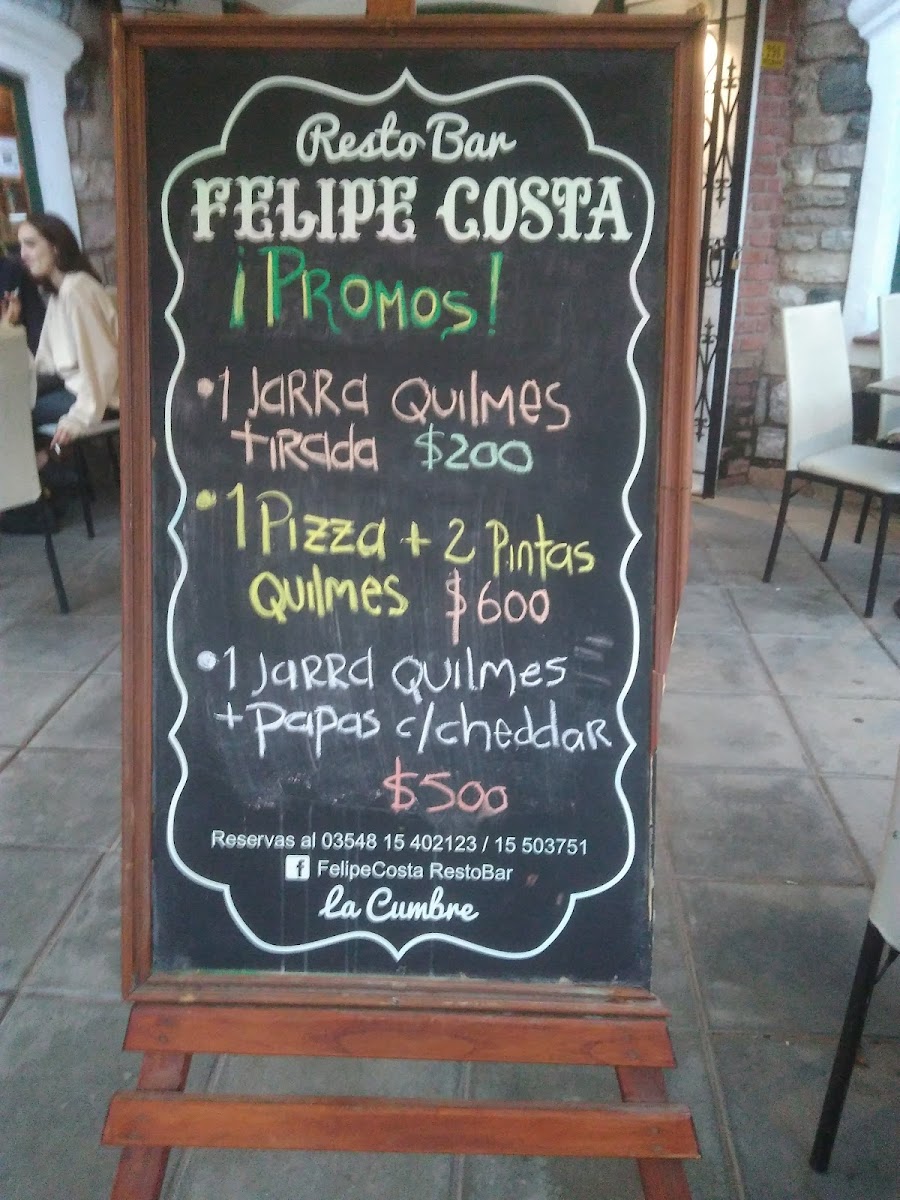 Resto Bar
FELIPE COSTA
¡PROMOS!
•1 JARRA QUILMES
tIRAda $200
•1 Pizza + 2 Pintas
QUILMES $600
•1 JARRA QUILMES
+ papas c/cheddar
$500
Reservas al 03548 15 402123 / 15 503751
f FelipeCosta RestoBar
La Cumbre